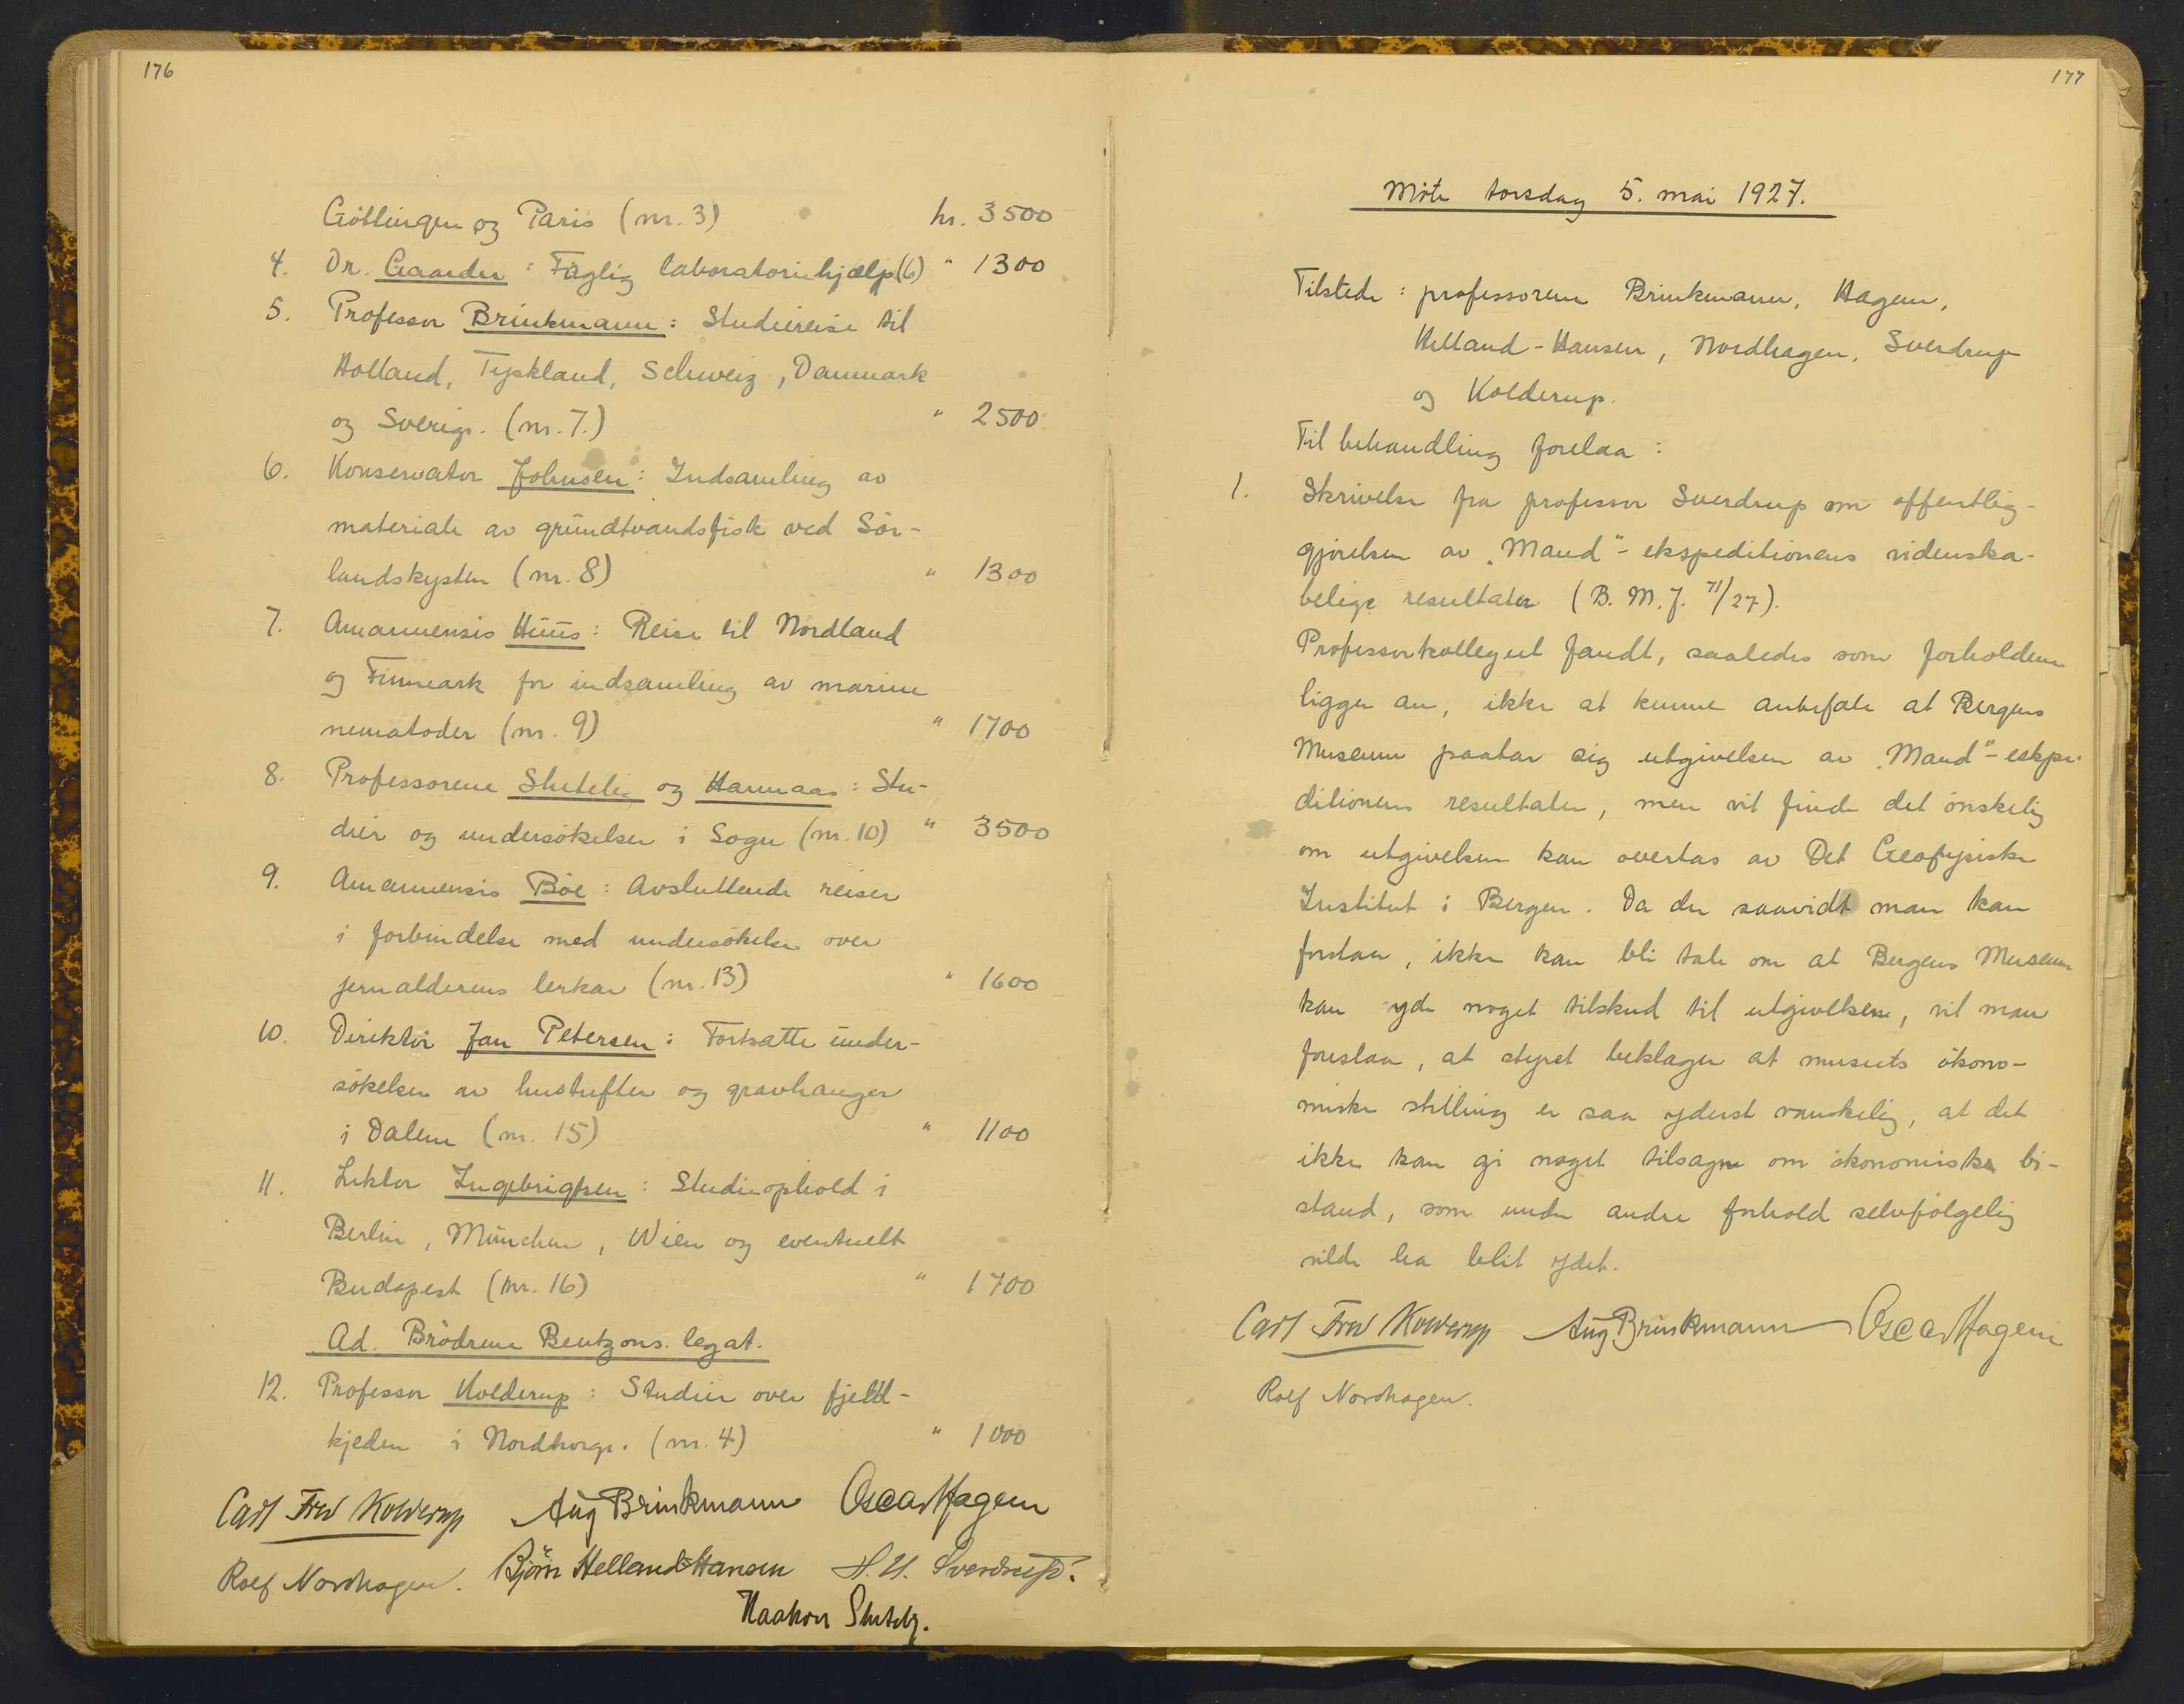 176
Göttingen og Paris (nr. 3) kr. 3500
4. Dr. Gaarder : Faglig laboratoriehjælp (6) " 1300
5. Professor Brinkmann : Studiereise til
Holland, Tyskland, Schweiz, Danmark
og Sverige. (nr. 7.) " 2500
6. Konservator Johnsen : Indsamling av
materiale av grundtvandsfisk ved Sör-
landskysten (nr. 8) " 1300
7. Amanuensis Huus : Reise til Nordland
og Finmark for indsamling av marine
nematoder (nr. 9) " 1700
8. Professorene Shetelig og Hannaas : Stu-
dier og undersökelser i Sogn (nr. 10) " 3500
9. Amanuensis Böe : Avsluttende reiser
i forbindelse med undersökelse over
jernalderens lerkar (nr. 13) " 1600
10. Direktör Jan Petersen : Fortsatte under-
sökelser av hustufter og gravhauger
i Dalene (nr. 15) " 1100
11. Lektor Ingebrigtsen : Studieophold i
Berlin, München, Wien og eventuelt
Budapest (nr. 16) " 1700
Ad. Brödrene Bentzons. legat.
12. Professor Kolderup : Studier over fjeld-
kjeden i Nordhorge. (nr. 4) " 1000
Carl Fred Kolderup Aug Brinkmann Oscar Hagem
Rolf Nordhagen. Björn Helland-Hansen H. U. Sverdrup.
Haakon Shetelig.
177
Möte torsdag 5. mai 1927.
Tilstede : professorene Brinkmann, Hagem,
Helland-Hansen, Nordhagen, Sverdrup
og Kolderup.
Til behandling forelaa :
1. Skrivelse fra professor Sverdrup om offentlig-
gjörelsen av „Maud"-ekspeditionens videnska-
belige resultater (B. M. J. 71/27).
Professorkollegiet fandt, saaledes som forholdene
ligger an, ikke at kunne anbefale at Bergens
Museum paatar sig utgivelsen av „Maud"-eskpe-
ditionens resultater, men vil finde det önskelig
om utgivelsen kan overtas av Det Geofysiske
Institut i Bergen. Da der saavidt man kan
forstaa, ikke kan bli tale om at Bergens Museum
kan yde noget tilskud til utgivelsene, vil man
foreslaa, at styret beklager at museets ökono-
miske stilling er saa yderst vanskelig, at det
ikke kan gi noget tilsagn om ökonomiske bi-
stand, som under andre forhold selvfölgelig
vilde ha blit ydet.
Carl Fred Kolderup Aug Brinkmann Oscar Hagem
Rolf Nordhagen.